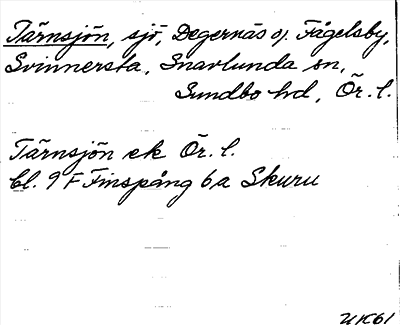 Tärnsjön, sjö, Degernäs o. Fågelsby,
Svinnersta, Snavlunda sn,
Sundbo hd, Ör. l.
Tärnsjön ek Ör. l.
bl. 9 F Finspång 6a Skuru
UK61